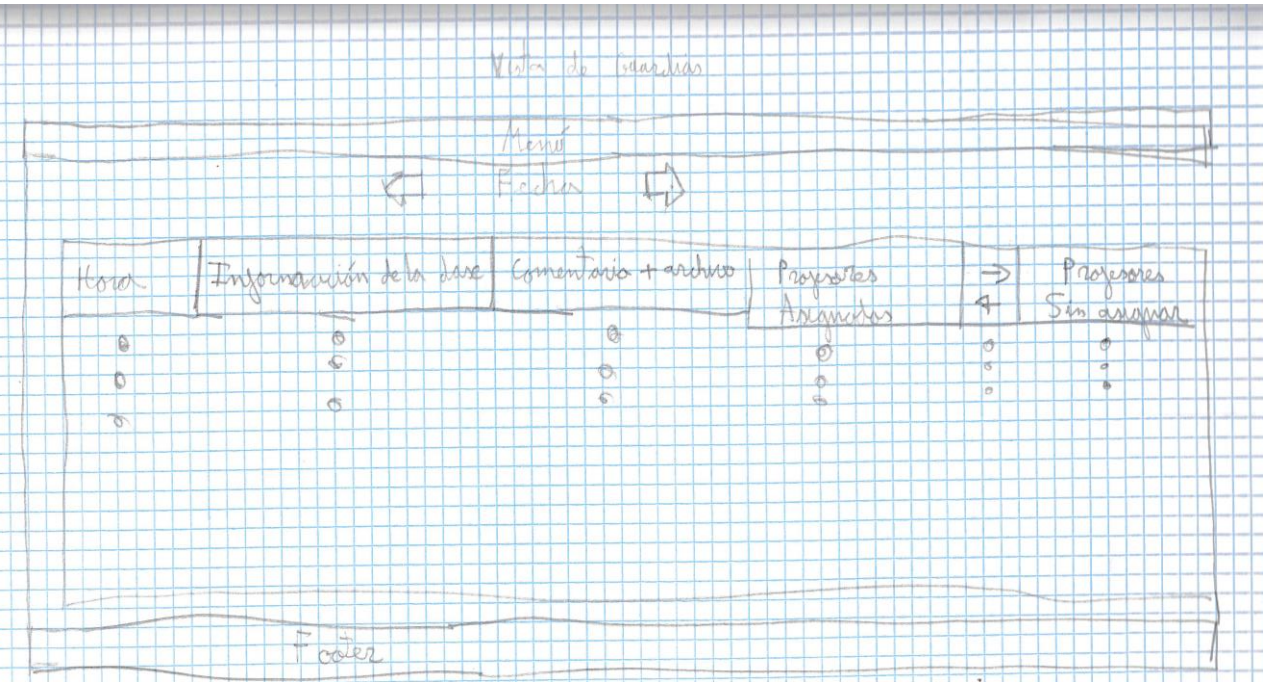 Vista de Guardias
Menú
Fecha
Hora
Información de la clase
Comentario + archivo
Profesores
Asignados
Profesores
Sin asignar
Footer